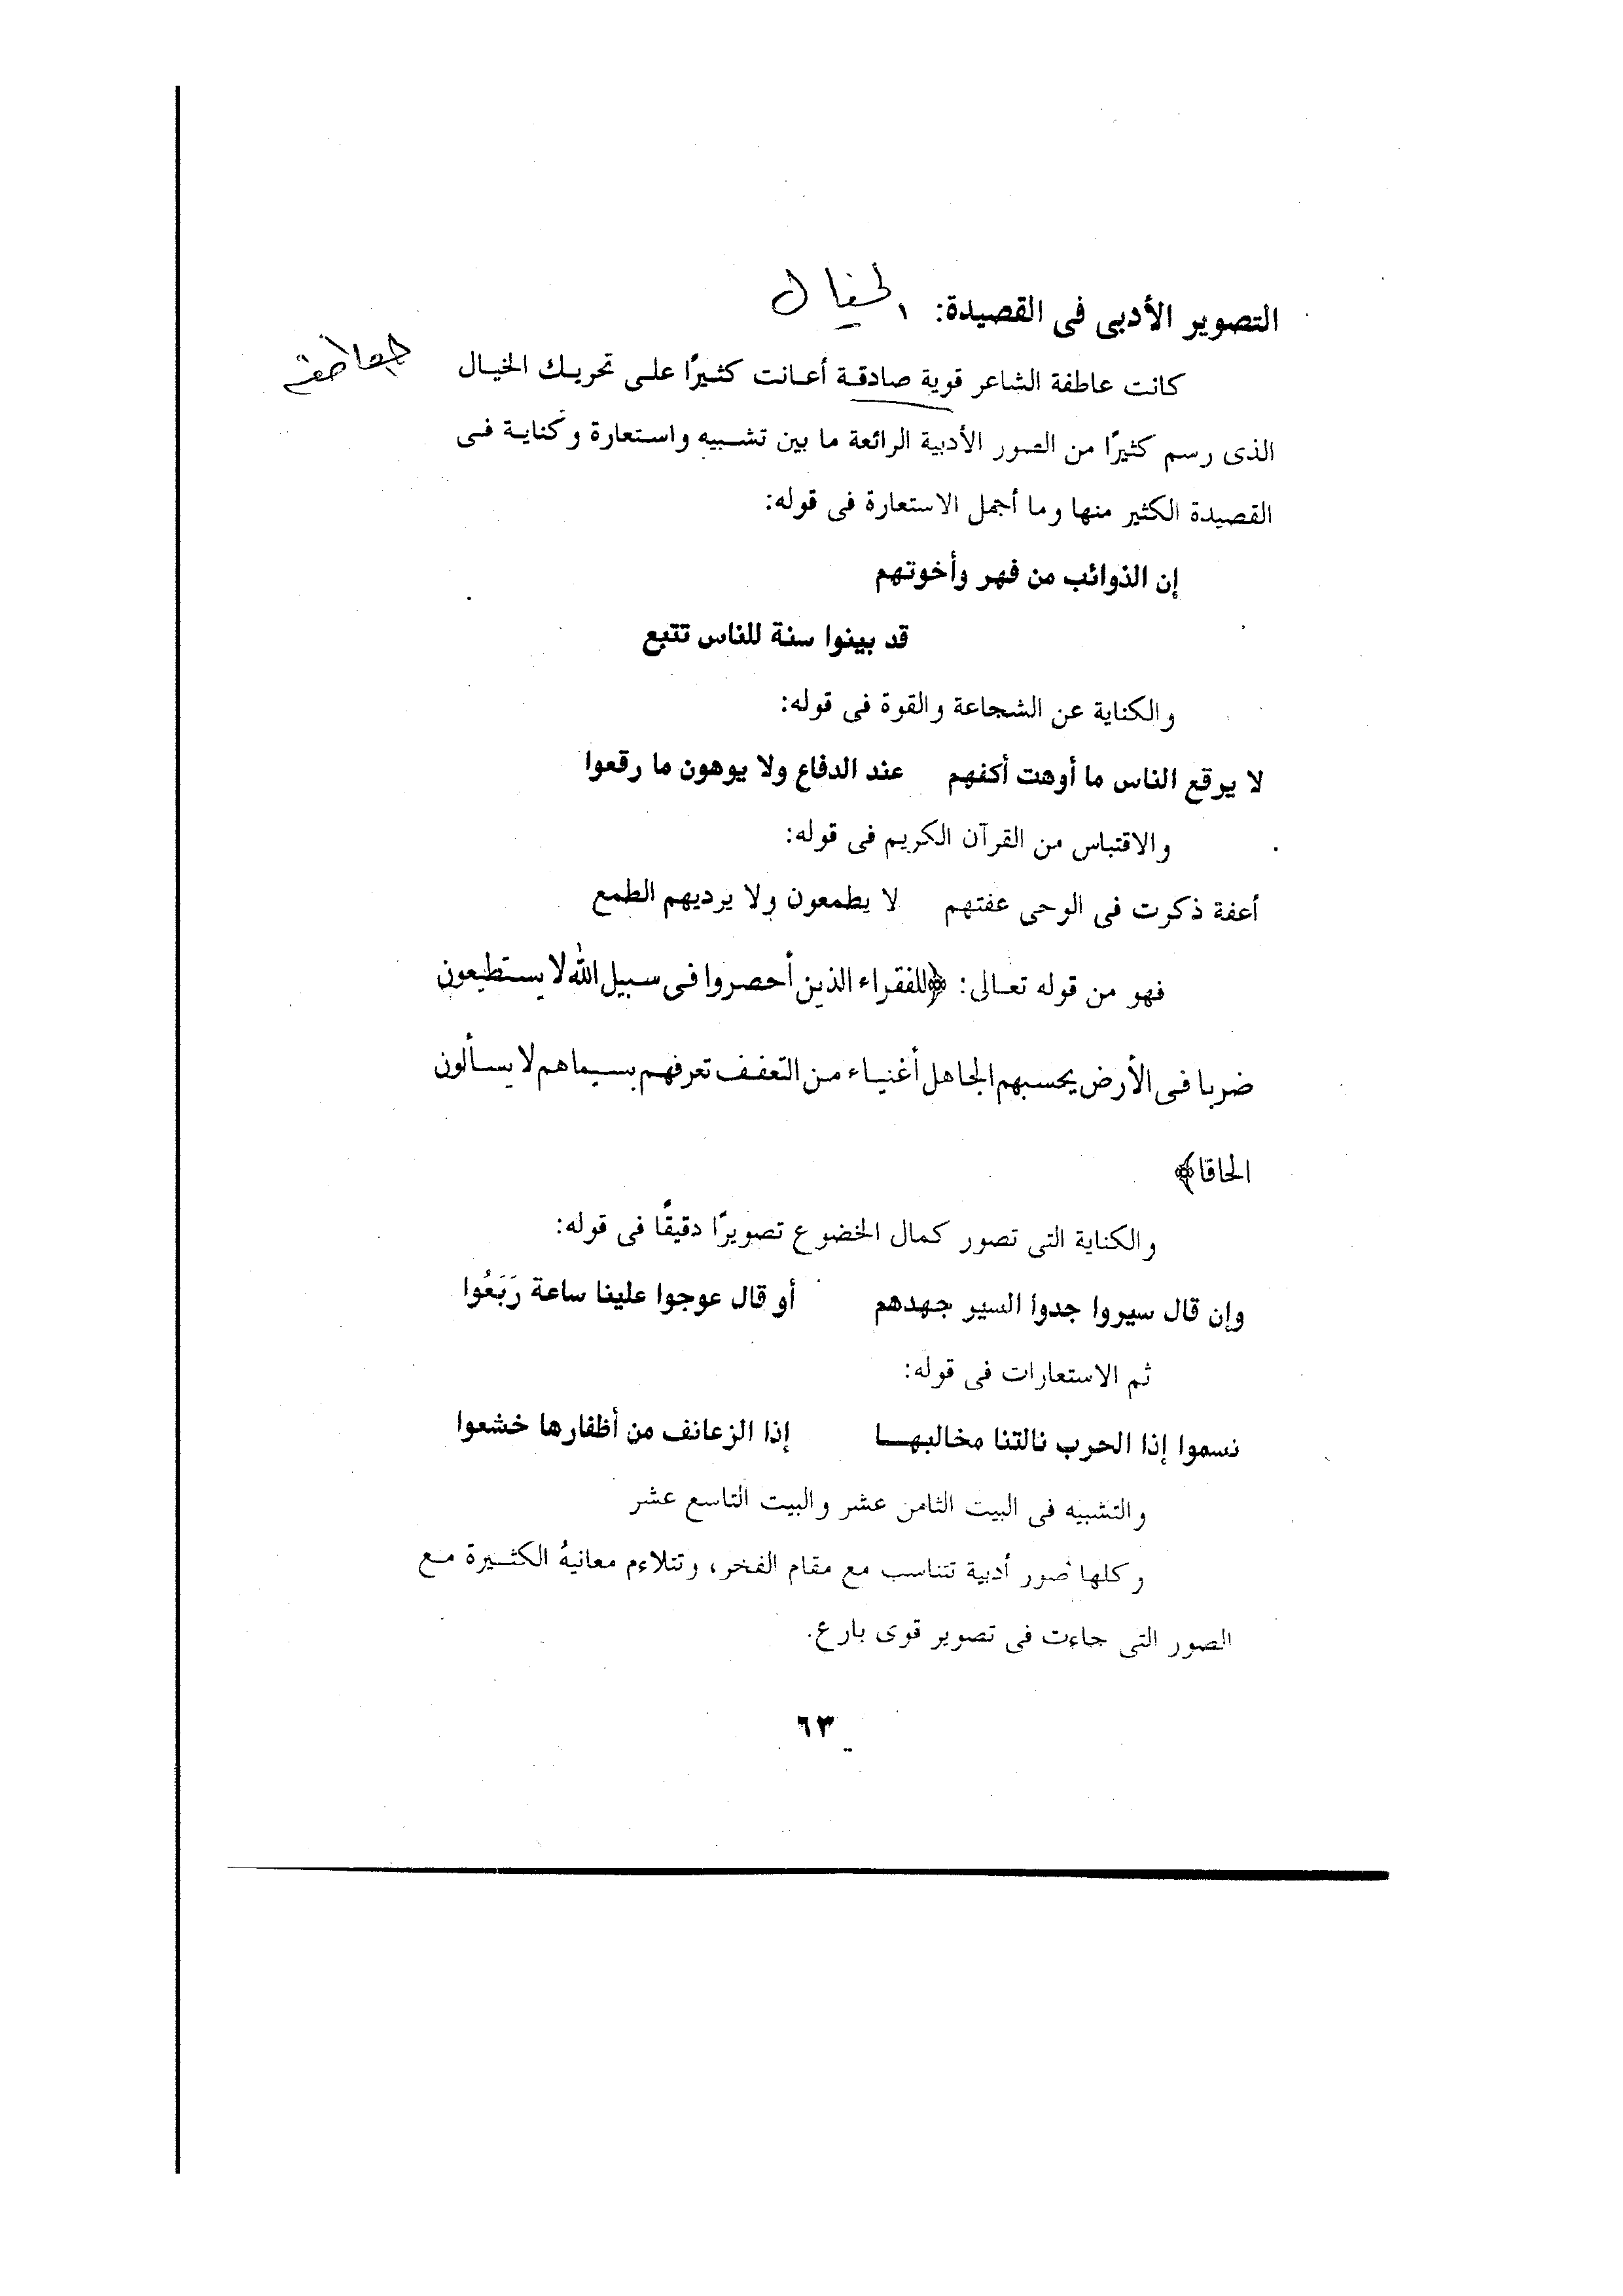 التصوير الأدبى فى القصيدة: الخيال
كانت عاطفة الشاعر قوية صادقة أعانت كثيرًا على تحريك الخيال
العاطفة
الذى رسم كثيرًا من الصور الأدبية الرائعة ما بين تشبيه واستعارة وكناية فى
القصيدة الكثير منها وما أجمل الاستعارة فى قوله:
إن الذوائب من فهر وأخوتهم
قد بينوا سنة للناس تتبع
والكناية عن الشجاعة والقوة فى قوله:
لا يرقع الناس ما أوهت أكفهم عند الدفاع ولا يوهون ما رقعوا
والاقتباس من القرآن الكريم فى قوله:
أعفة ذكرت فى الوحى عفتهم لا يطمعون ولا يرديهم الطمع
فهو من قوله تعالى: ﴿للفقراء الذين أحصروا فى سبيل الله لا يستطيعون
ضربا فى الأرض يحسبهم الجاهل أغنياء من التعفف تعرفهم بسيماهم لا يسألون
الحاقا﴾
والكناية التى تصور كمال الخضوع تصويرًا دقيقًا فى قوله:
وإن قال سيروا جدوا السير جهدهم أو قال عوجوا علينا ساعة رَبَعُوا
ثم الاستعارات فى قوله:
نسموا إذا الحرب نالتنا مخالبهـا إذا الزعانف من أظفارها خشعوا
والتشبيه فى البيت الثامن عشر والبيت التاسع عشر
وكلها صور أدبية تتناسب مع مقام الفخر، وتتلاءم معانيه الكثيرة مع
الصور التى جاءت فى تصوير قوى بارع.
٦٣